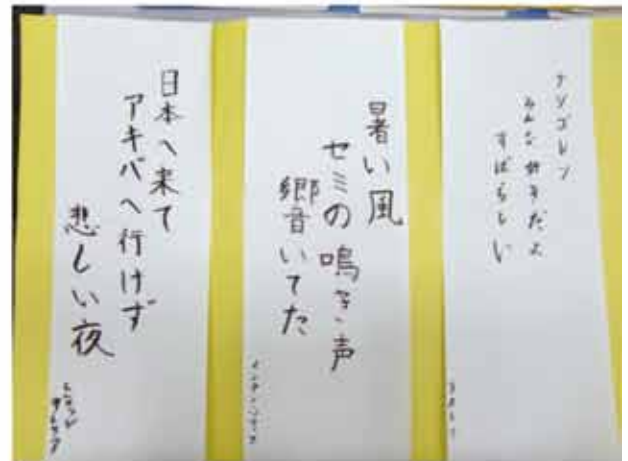 ナシゴレン
みんな好きだよ
すばらしい
暑い風
セミの鳴き声
郷音いてた
日本へ来て
アキバへ行けず
悲しい夜